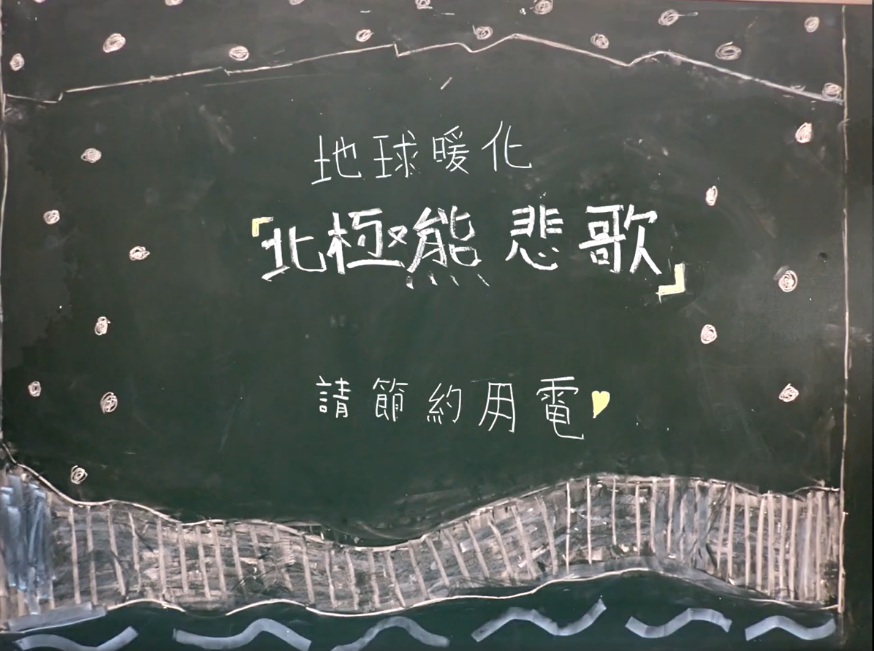 地球暖化
「北極熊悲歌」
請節約用電